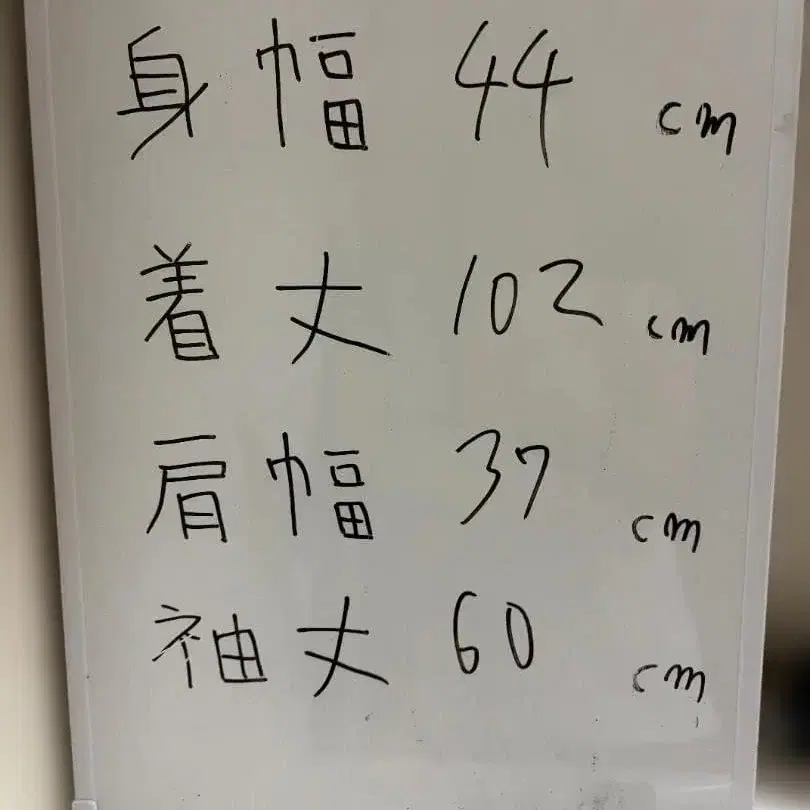 身幅 44 cm
着丈 102 cm
肩幅 37 cm
袖丈 60 cm